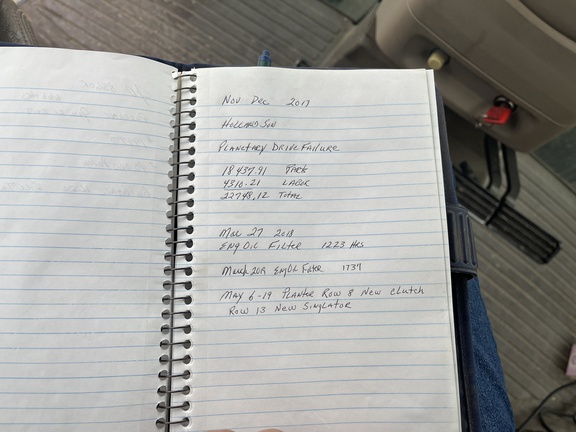 Nov Dec 2017
Holland Son
Planetary Drive Failure
18437.91 Parts
4310.21 Labor
22748.12 Total
Mar 27 2018
Eng Oil Filter 1223 Hrs
March 20 Eng Oil Filter 1737
May 6-19 Planter Row 8 New Clutch
Row 13 New Singlator